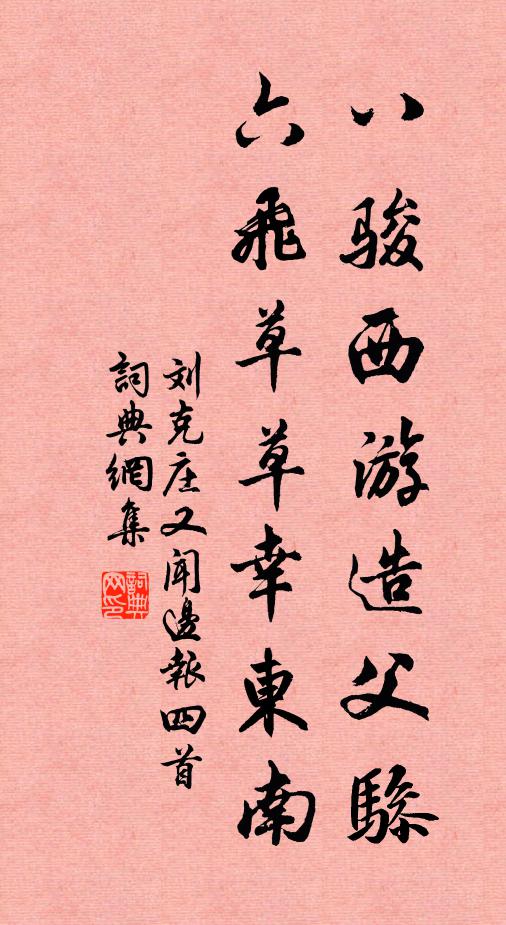 八骏西游造父骖
六飛草草幸東南
刘克庄又闻邊報四首
詞典網集
詞典网印